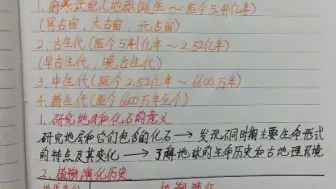 1. 前寒武纪(地球诞生～距今5.41亿年)
(冥古宙，太古宙，元古宙)
2. 古生代(距今5.41亿年～2.52亿年)
(早古生代，晚古生代)
3. 中生代(距今2.52亿年～6600万年)
4. 新生代(距今6600万年至今)
1. 研究地层和化石的意义
研究地层和它们包含的化石→发现不同时期主要生命形式
的特点及其变化→了解地球的生命历史和古地理环境
2. 植物演化历史